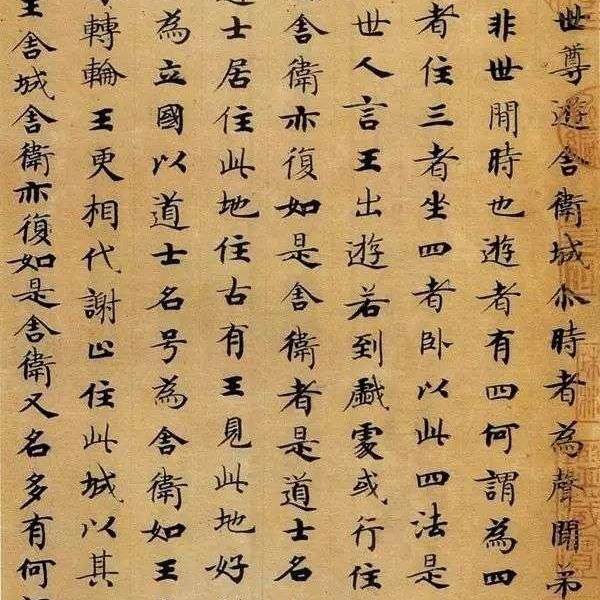 世尊遊舍衛城尒時者為聲聞弟
非世間時也遊者有四何謂為四
者住三者坐四者卧以此四法是
世人言王出遊若到戲處或行住
舍衛亦復如是舍衛者是道士名
士居住此地住古有王見此地好
為立國以道士名号為舍衛如王
轉輪王更相代謝止住此城以其
王舍城舍衛亦復如是舍衛又名多有何